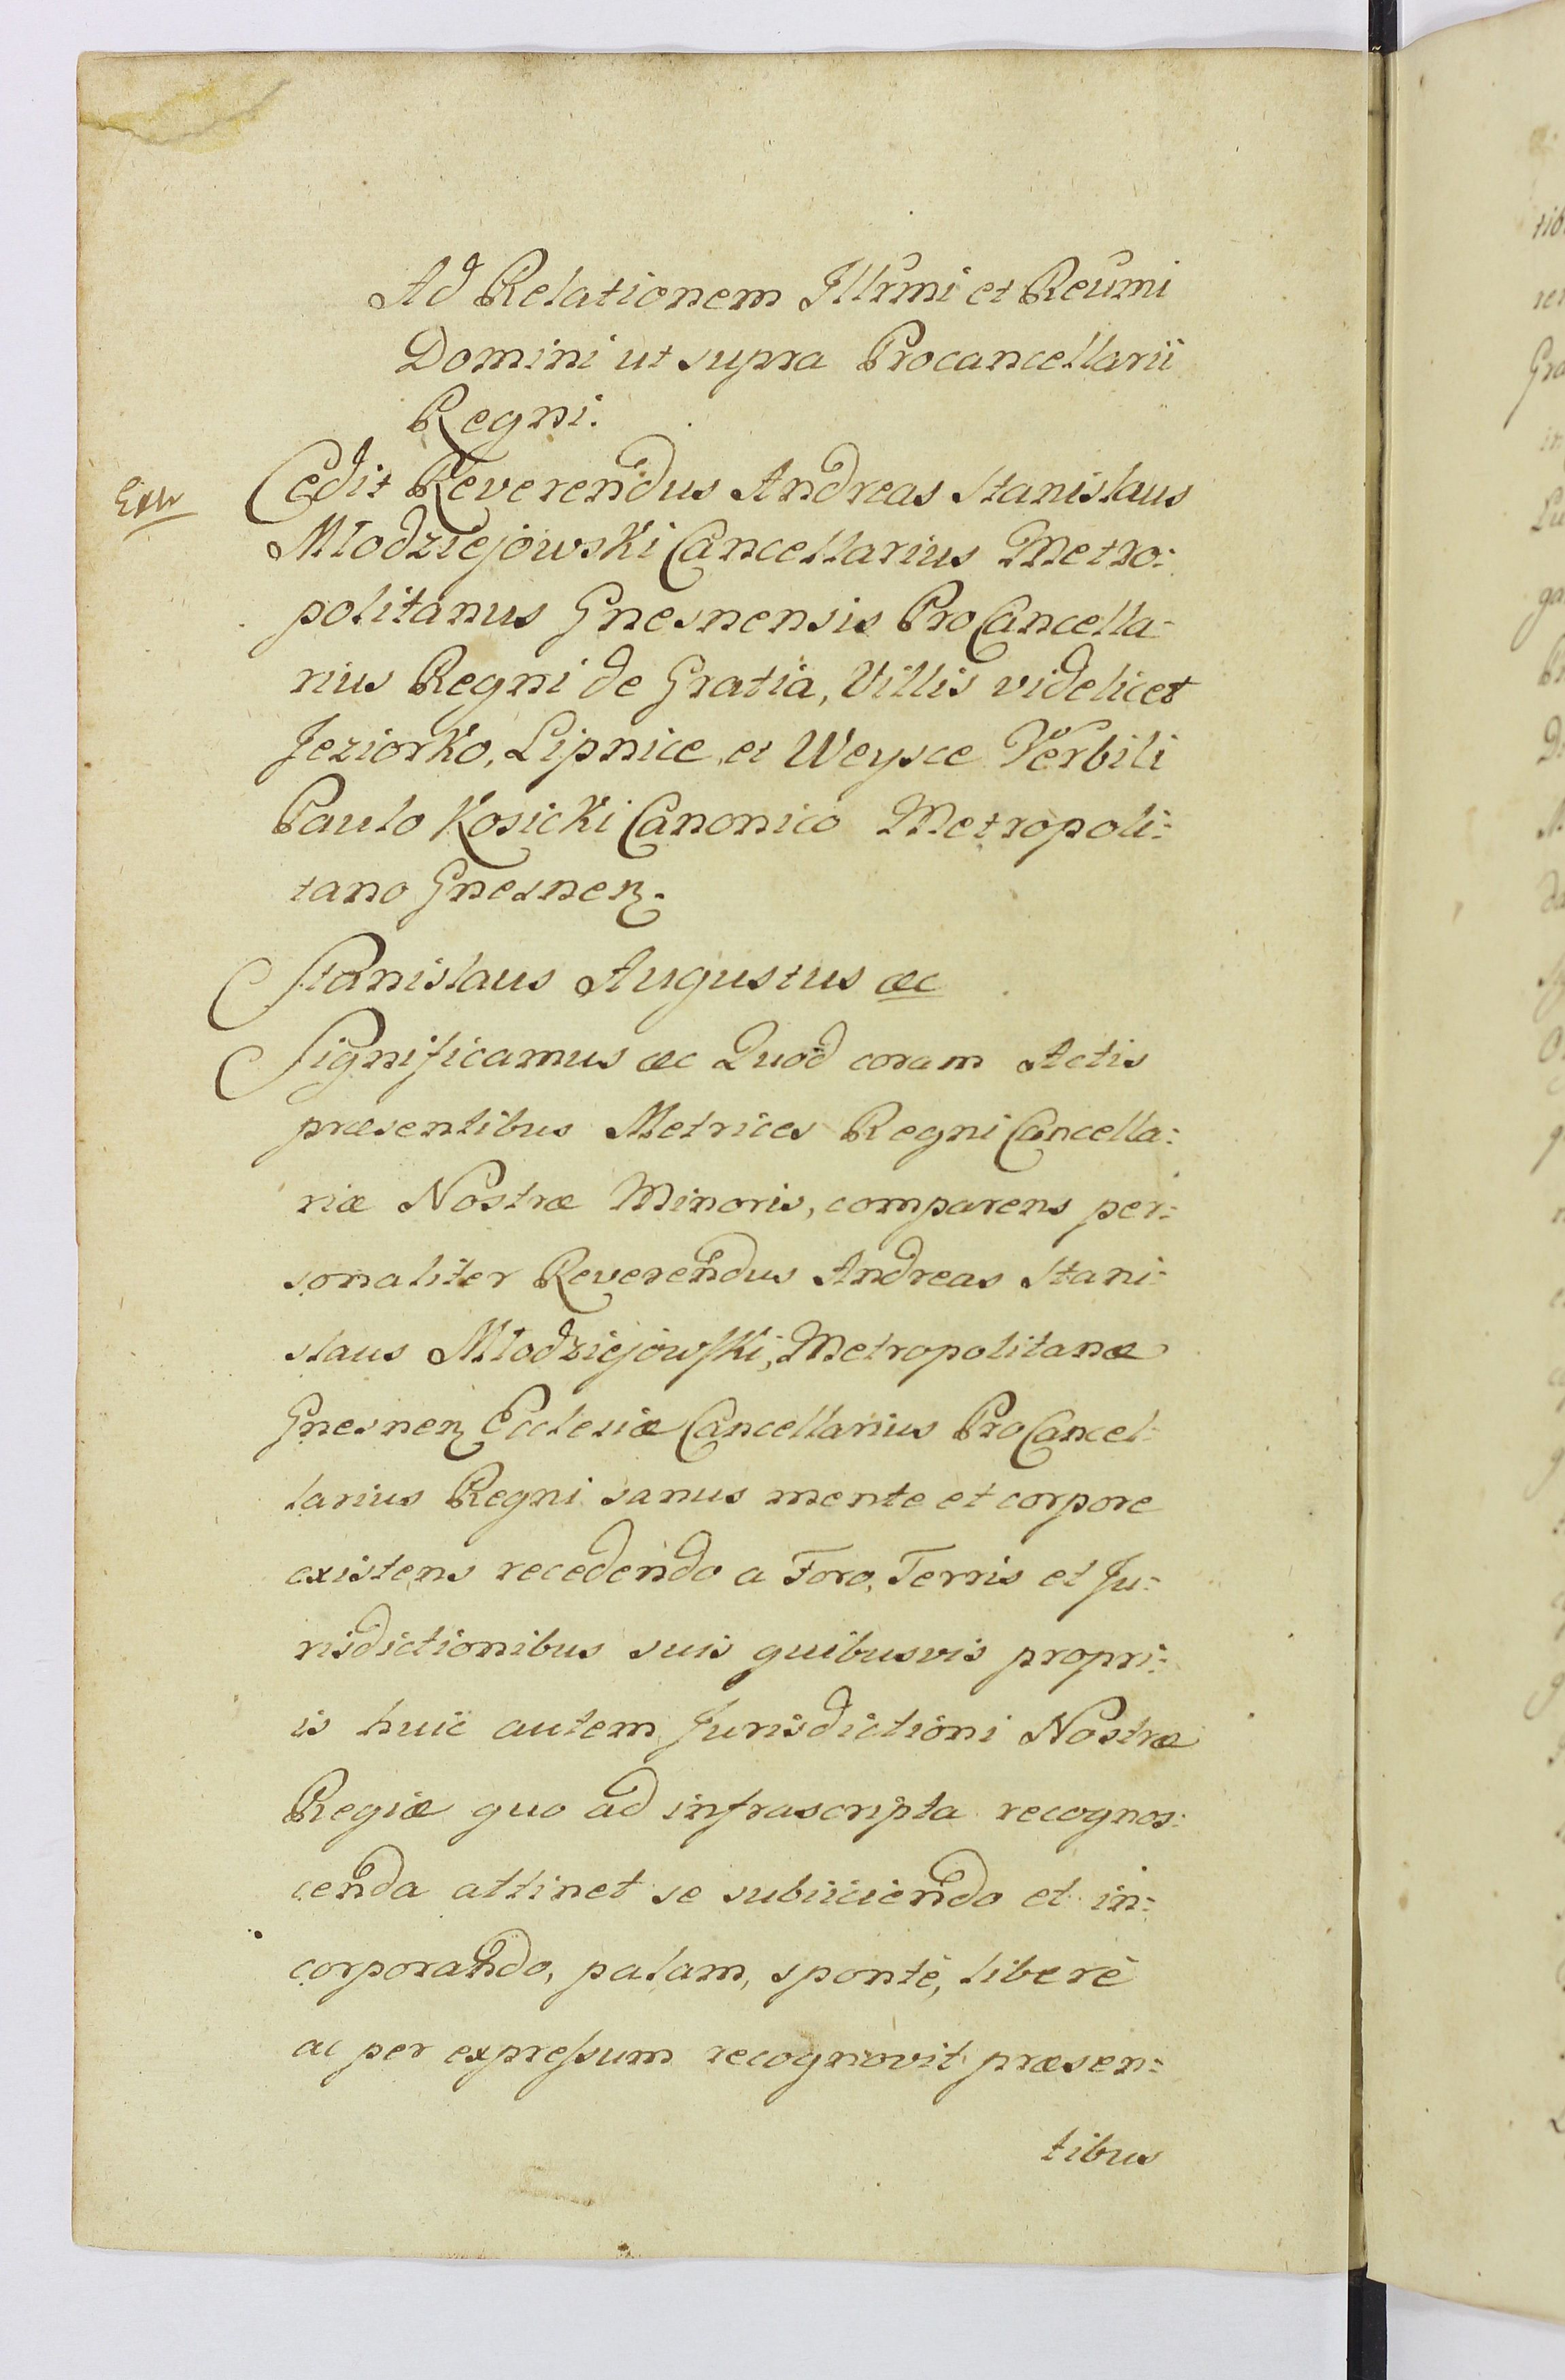 Ad Relationem Illrmi et Reumi
Domini ut supra Procancellarii
Regni.
Cedit Reverendus Andreas Stanislaus
Młodziejowski Cancellarius Metro:
politanus Gnesnensis ProCancella:
rius Regni de Gratia, Villis videlicet
Jeziorko, Lipnice et Weysce Verbili
Paulo Kosicki Canonico Metropoli:
tano Gnesnen.
Stanislaus Augustus &c
Significamus &c Quod coram Actis
præsentibus Metrices Regni Cancella:
riæ Nostræ Minoris, comparens per:
sonaliter Reverendus Andreas Stani:
slaus Młodziejowski, Metropolitanæ
Gnesnen Ecclesiæ Cancellarius ProCancel:
larius Regni sanus mente et corpore
existens recedendo a Foro, Terris et Ju:
risdictionibus suis quibusvis propri:
is huic autem Jurisdictioni Nostræ
Regiæ quo ad infrascripta recognos:
cenda attinet se subiiciendo et in:
corporando, palam, spontè, liberè
ac per expressum recognovit præsen:
tibus